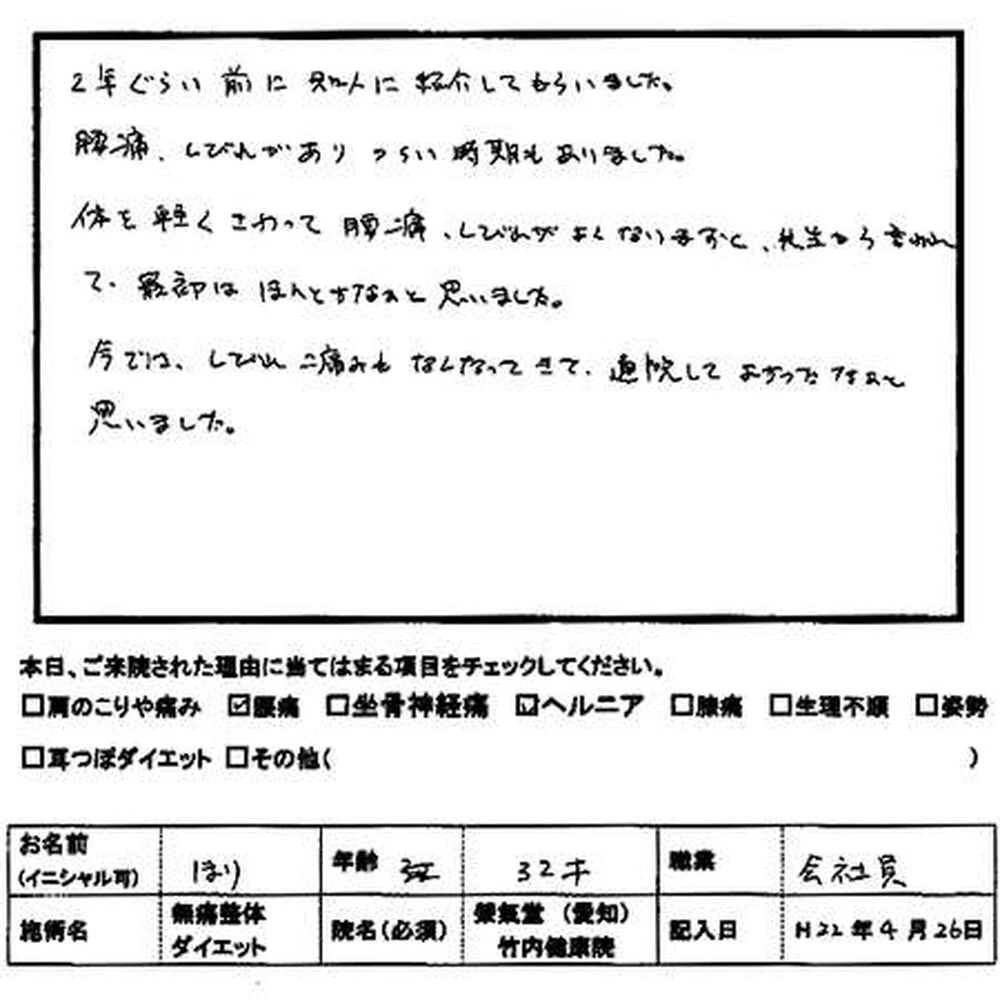 2年ぐらい前に知人に紹介してもらいました。
腰痛、しびれがありつらい時期もありました。
体を軽くさわって腰痛、しびれがよくなりますと、先生から言われ
て、最初はほんとかなぁと思いました。
今では、しびれ、痛みもなくなってきて、通院してよかったなぁと
思いました。
本日、ご来院された理由に当てはまる項目をチェックしてください。
□肩のこりや痛み ☑腰痛 □坐骨神経痛 ☑ヘルニア □膝痛 □生理不順 □姿勢
□耳つぼダイエット □その他( )
お名前(イニシャル可) ほり 年齢 32才 職業 会社員
施術名 無痛整体ダイエット 院名(必須) 榮氣堂(愛知)竹内健康院 記入日 H22年4月26日